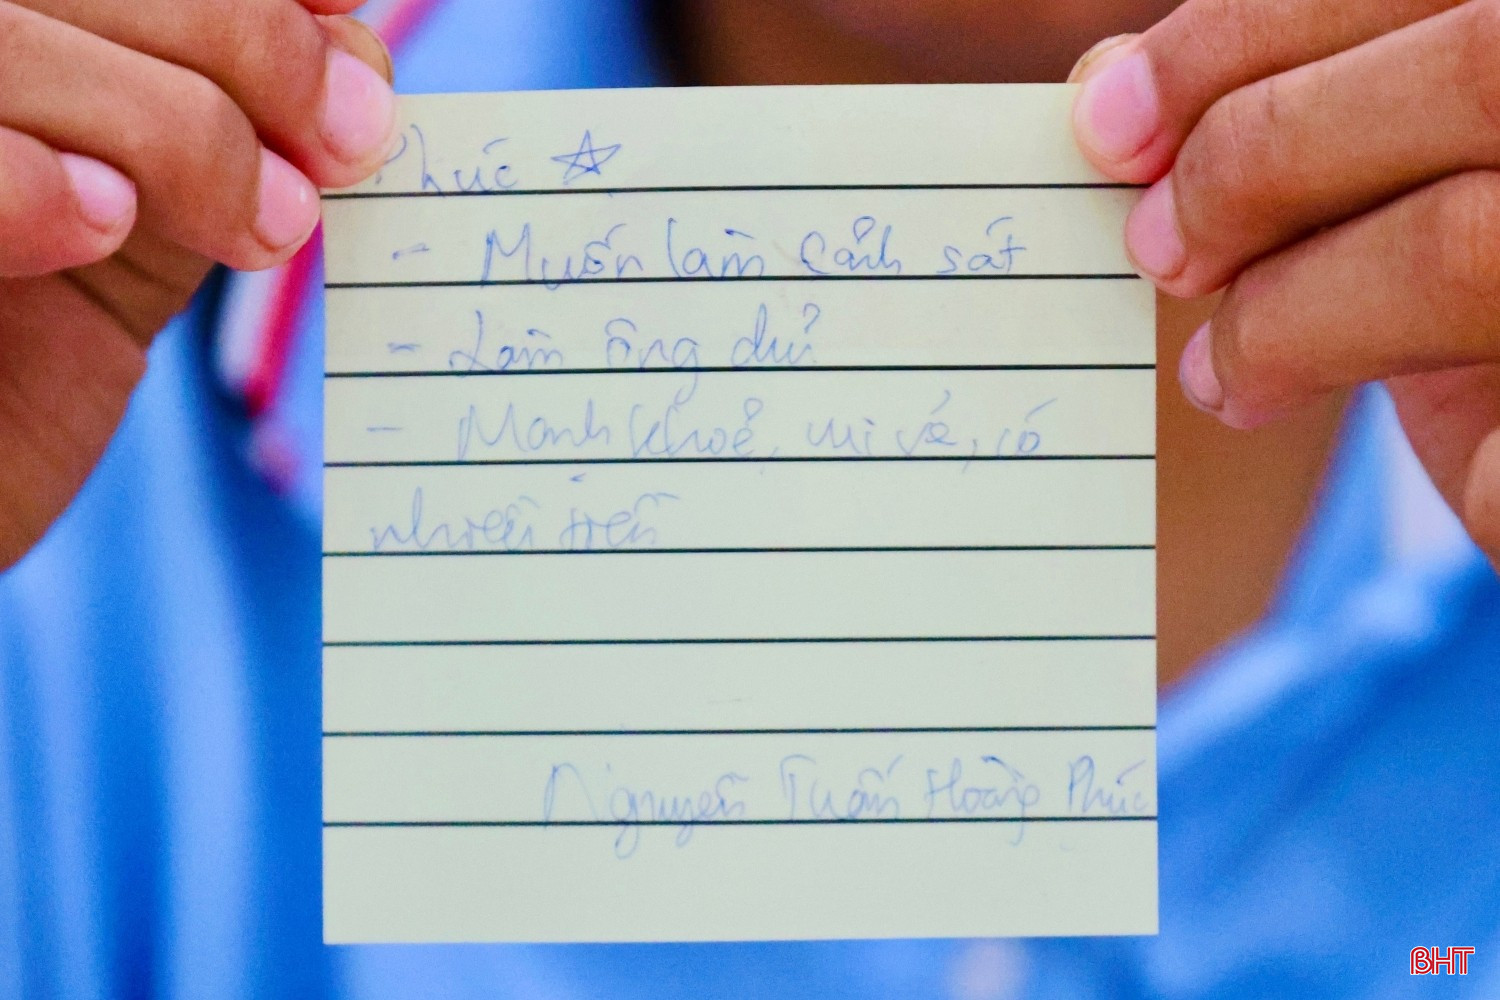 Phúc
- Muốn làm cảnh sát
- Làm ông chủ
- Mạnh khoẻ, vui vẻ, có
nhiều tiền
Nguyễn Tuấn Hoàng Phúc
BHT